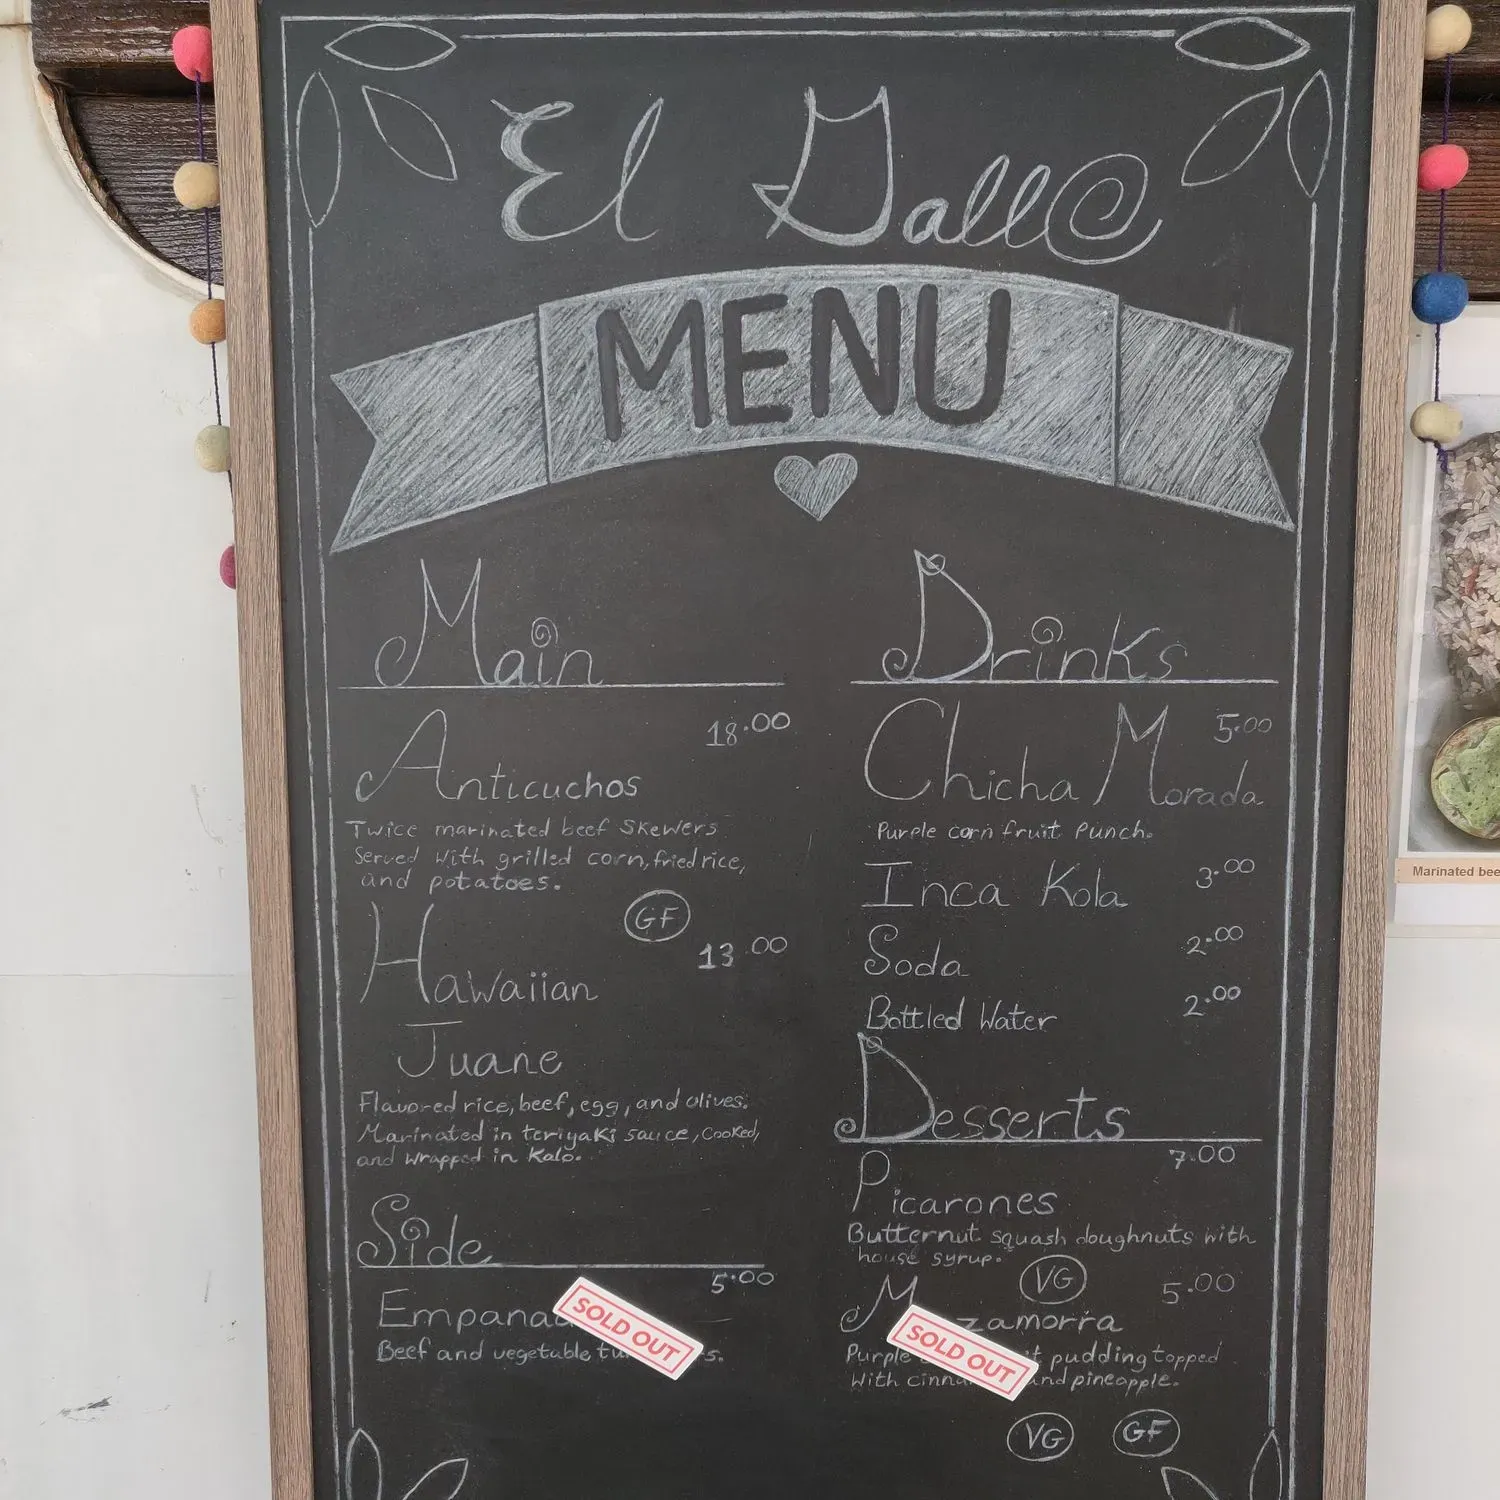 El Gallo
MENU
Main
Anticuchos 18.00
Twice marinated beef skewers
Served with grilled corn, fried rice,
and potatoes.
GF
Hawaiian 13.00
Juane
Flavored rice, beef, egg, and olives.
Marinated in teriyaki sauce, cooked,
and wrapped in Kalo.
Side
Empanad 5.00
SOLD OUT
Beef and vegetable tu s.
Drinks
Chicha Morada 5.00
Purple corn fruit punch.
Inca Kola 3.00
Soda 2.00
Bottled Water 2.00
Desserts
Picarones 7.00
Butternut squash doughnuts with
house syrup.
VG
M zamorra 5.00
SOLD OUT
Purple it pudding topped
with cinna and pineapple.
VG GF
Marinated bee